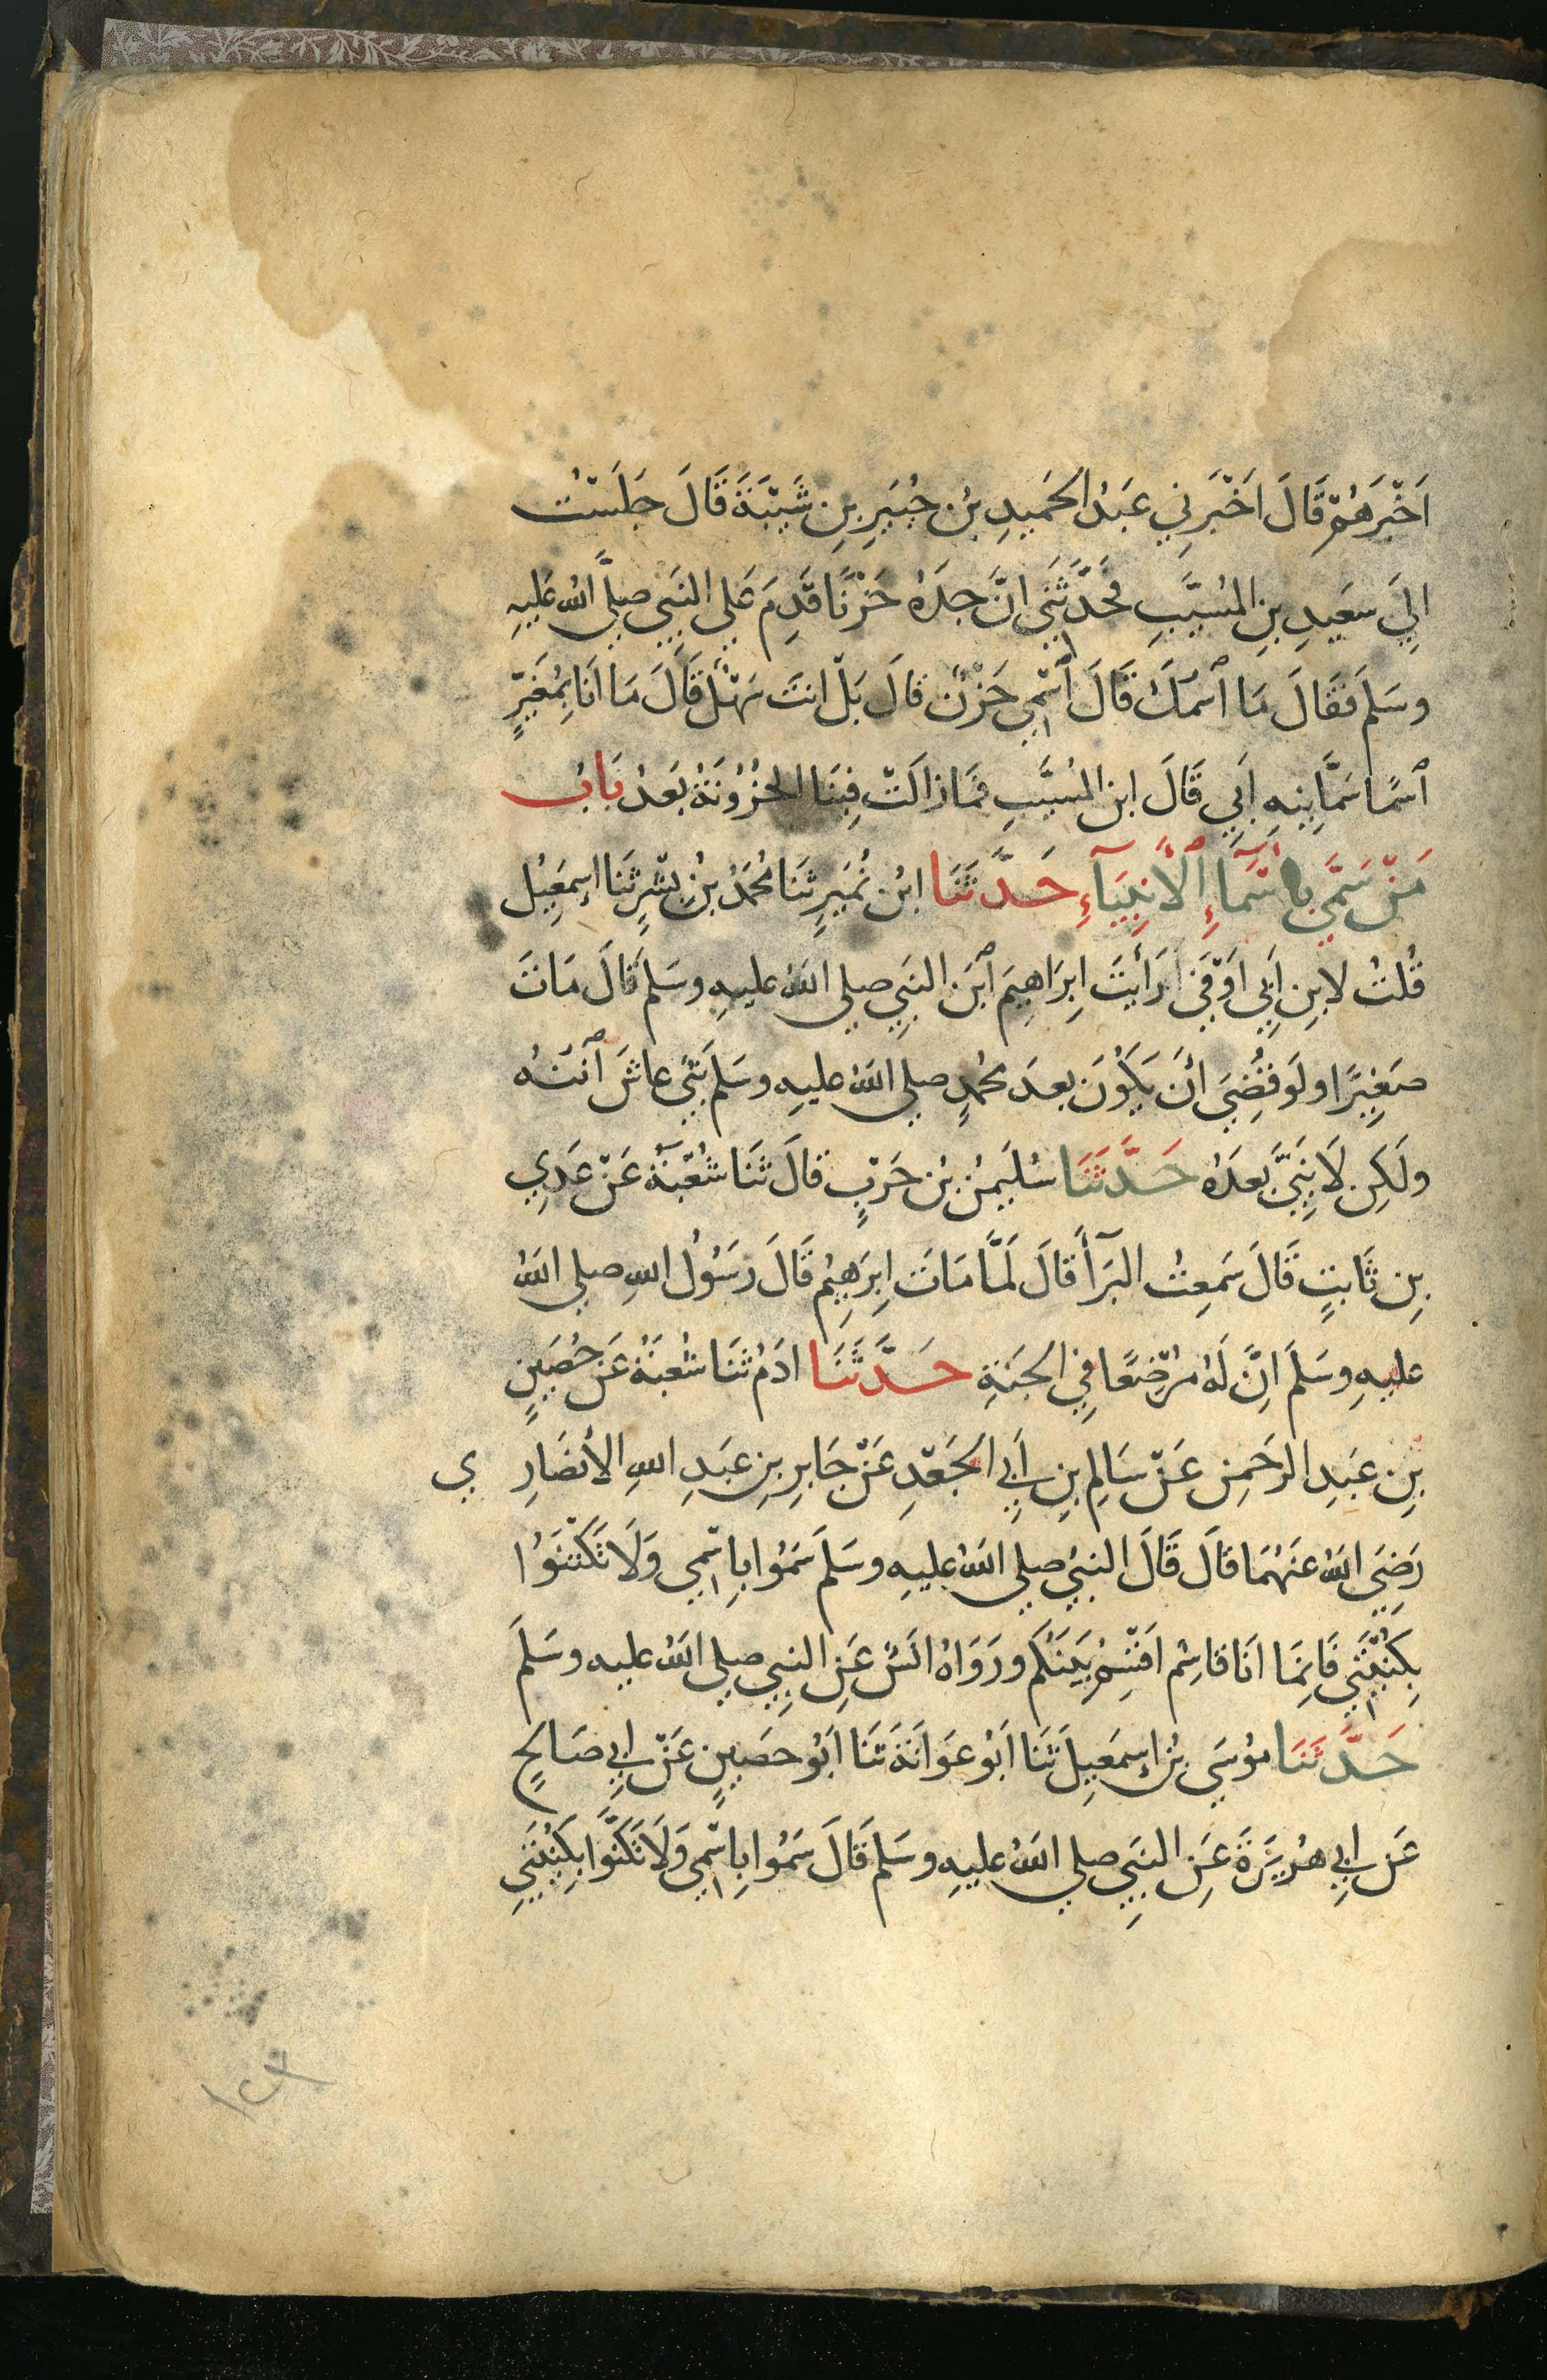 اَخْبَرَهُمْ قَالَ اَخْبَرَنِي عَبْدُ الحَمِيدِ بْنُ جُبَيرِ بِنِ شَيْبَةَ قَالَ جَلَسْتُ
اِلَي سَعَيدِ بنِ المُسَيَّبِ فَحَدَّثَنِي انَّ جدَهُ حَزْنًا قَدِمَ عَلي النَبِي صلَّي اللهُ عَليهِ
وسَلَم فَقَالَ مَا ٱسمُكَ قَالَ ٱسْمِي حَزْنٌ قالَ بَلْ انتَ سَهْلٌ قَالَ مَا انَا بِمُغَيِّرٍ
ٱسمًا سَمَّانِيهِ اَبِي قَالَ ابن المُسَيَّبِ فَمَا زالَتْ فِينَا الحُزُونَةُ بَعدُ بَابُ
مَنْ سَمَّي بِاَسْمَآءِ ٱلاَنِبيَآءِ حَدَّثَنَا ابْن نُمَيرٍ ثَنَا مُحَمَدُ بْنُ بِشْرٍ ثَنَا اِسمَعِيْل
قُلتُ لابِنِ اَبِي اَوْفَي اَرَأيتَ اِبرَاهِيمَ ٱبْنَ النَبِي صلي اللهُ عليهِ وسَلَم قَالَ مَاتَ
صَغِيرًا ولَو قُضِيَ اَنَ يَكُونَ بعدَ مُحمدٍ صلي اللهُ عليهِ وسَلَم نَبِيٌ عاشَ ٱبْنُه
ولَكِن لَا نَبِيَّ بَعدَهُ حَدَّثَنَا سُلَيمنُ بْن حَرْبٍ قالَ ثَنَا شُعْبَةُ عَنْ عَدِي
بِن ثَابتٍ قَالَ سَمِعتُ البَرَآأَ قالَ لَمَّا مَاتَ اِبرَهِيمُ قَالَ رَسُولُ اللهِ صلي اللهُ
عليهِ وسَلَمَ اِنَّ لَهُ مُرْضِعًا فِي الجَنةِ حَدَّثَنَا ادَمُ ثَنَا شُعبَةُ عَن حُصَينٍ
بنِ عبَدِ الرَحمِن عَنْ سَالِم بنِ اَبِي الجَعْدِ عَنْ جَابرِ بِن عبَدِ اللهِ الاَنصَارِ ي
رَضِيَ اللهُ عَنهُمَا قالَ قَالَ النبيُ صلي اللهُ عليهِ وسَلَم سَمُوا بِاسْمِي وَلَا تَكْتَنُوا
بِكُنْيَتِي فَاِنمَا انَا قاسِمٌ اَقْسِمُ بَينَكُم ورَوَاهُ انَسٌ عَنِ النبِي صلي اللهُ عليه وسَلَمَ
حَدَّثَنَا مُوسَي بْن اِسمَعِيلَ ثَنَا اَبُو عَوَانَةَ ثنَا اَبُو حصَينٍ عَنْ ابِي صَالحٍ
عَن ابِي هُريَرَةَ عَنِ النبِي صلي اللهُ عليهِ وسَلَم قَالَ سَمُوا بِاسْمِي وَلَا تَكَنَّوا بِكُنيَتِي
١٢٣